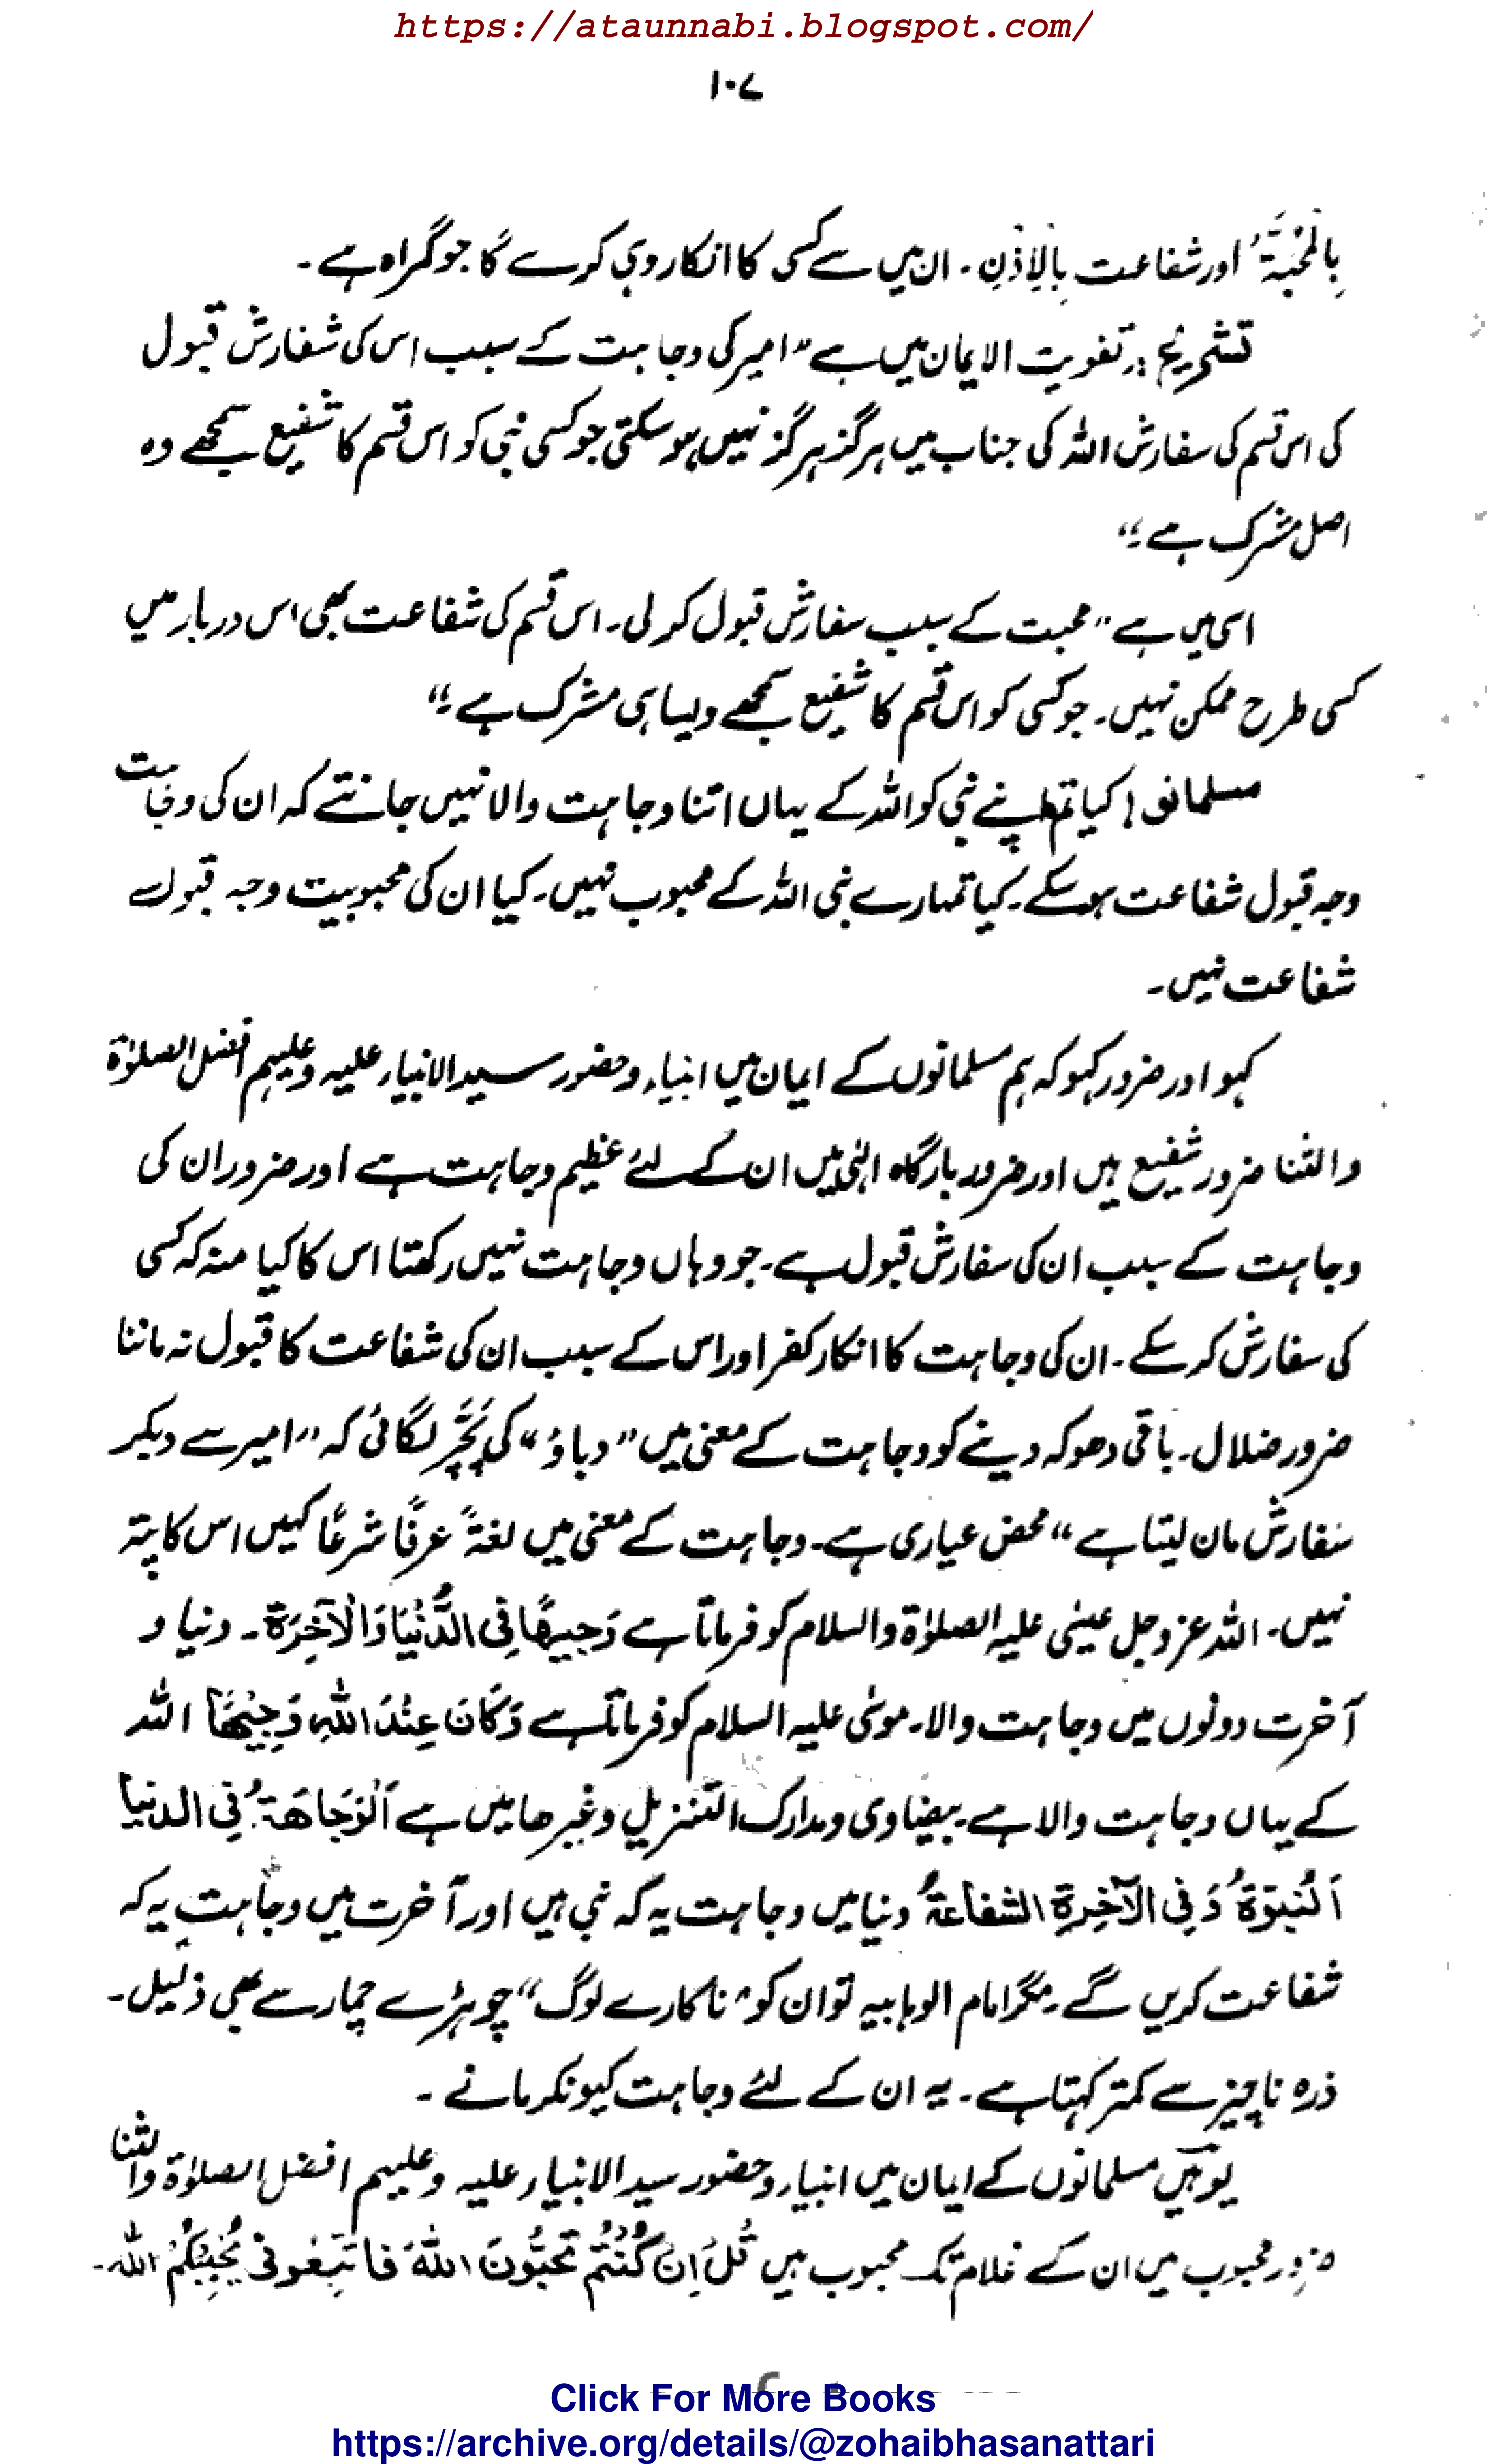 https://ataunnabi.blogspot.com/
۱۰۷
بِالْمَحَبَّۃِ اور شفاعت بِالْاِذْنِ ۔ ان میں سے کسی کا انکار وہی کرے گا جو گمراہ ہے ۔
تشریح :۔ تفویت الایمان میں ہے ”امیر کی وجاہت کے سبب اس کی شفارش قبول
کی اس قسم کی سفارش اللہ کی جناب میں ہرگز ہرگز نہیں ہو سکتی جو کسی نبی کو اس قسم کا شفیع سمجھے وہ
اصل مشرک ہے ۔“
اسی میں ہے ”محبت کے سبب سفارش قبول کر لی ۔ اس قسم کی شفاعت بھی اس دربار میں
کسی طرح ممکن نہیں ۔ جو کسی کو اس قسم کا شفیع سمجھے ویسا ہی مشرک ہے ۔“
مسلمانو ! کیا تم اپنے نبی کو اللہ کے یہاں اتنا وجاہت والا نہیں جانتے کہ ان کی وجاہت
وجہ قبول شفاعت ہو سکے ۔ کیا تمہارے نبی اللہ کے محبوب نہیں ۔ کیا ان کی محبوبیت وجہ قبول
شفاعت نہیں ۔
کہو اور ضرور کہو کہ ہم مسلمانوں کے ایمان میں انبیاء و حضور سید الانبیاء علیہ وعلیہم افضل الصلوٰۃ
والثنا ضرور شفیع ہیں اور ضرور بارگاہ الٰہی میں ان کے لئے عظیم وجاہت ہے اور ضرور ان کی
وجاہت کے سبب ان کی سفارش قبول ہے ۔ جو وہاں وجاہت نہیں رکھتا اس کا کیا منہ کہ کسی
کی سفارش کر سکے ۔ ان کی وجاہت کا انکار کفر اور اس کے سبب ان کی شفاعت کا قبول نہ ماننا
ضرور ضلال ۔ باقی دھوکہ دینے کو وجاہت کے معنی میں ”دباؤ“ کی پَچَّر لگائی کہ ”امیر سے دبکر
سفارش مان لیتا ہے“ محض عیاری ہے ۔ وجاہت کے معنی میں لغۃً عرفًا شرعًا کہیں اس کا پتہ
نہیں ۔ اللہ عزوجل عیسٰی علیہ الصلوٰۃ والسلام کو فرماتا ہے وَجِیْھًا فِی الدُّنْیَا وَالْآخِرَۃِ ۔ دنیا و
آخرت دونوں میں وجاہت والا ۔ موسٰی علیہ السلام کو فرماتا ہے وَکَانَ عِنْدَ اللّٰہِ وَجِیْھًا اللہ
کے یہاں وجاہت والا ہے ۔ بیضاوی و مدارک التنزیل وغیرھا میں ہے اَلْوَجَاھَۃُ فِی الدنیا
اَلنُّبُوَّۃُ وَفِی الْآخِرَۃِ الشفاعۃُ دنیا میں وجاہت یہ کہ نبی ہیں اور آخرت میں وجاہت یہ کہ
شفاعت کریں گے ۔ مگر امام الوہابیہ تو ان کو ”ناکارے لوگ“ چوہڑے چمار سے بھی ذلیل ۔
ذرہ ناچیز سے کمتر کہتا ہے ۔ یہ ان کے لئے وجاہت کیونکر مانے ۔
یوہیں مسلمانوں کے ایمان میں انبیاء و حضور سید الانبیاء علیہ وعلیہم افضل الصلوٰۃ والثنا
ضرور محبوب ہیں ان کے غلام تک محبوب ہیں قُلْ اِنْ کُنْتُمْ تُحِبُّوْنَ اللّٰہَ فَاتَّبِعُوْنِیْ یُحْبِبْکُمُ اللہ ۔
Click For More Books
https://archive.org/details/@zohaibhasanattari